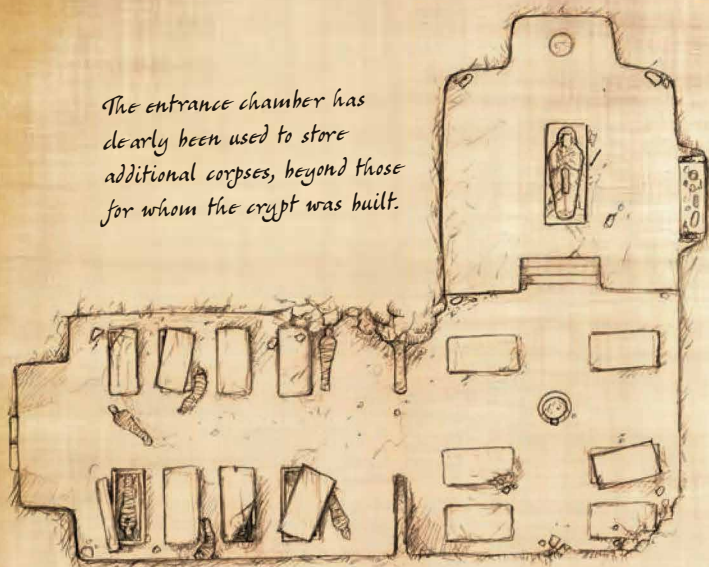 The entrance chamber has
clearly been used to store
additional corpses, beyond those
for whom the crypt was built.